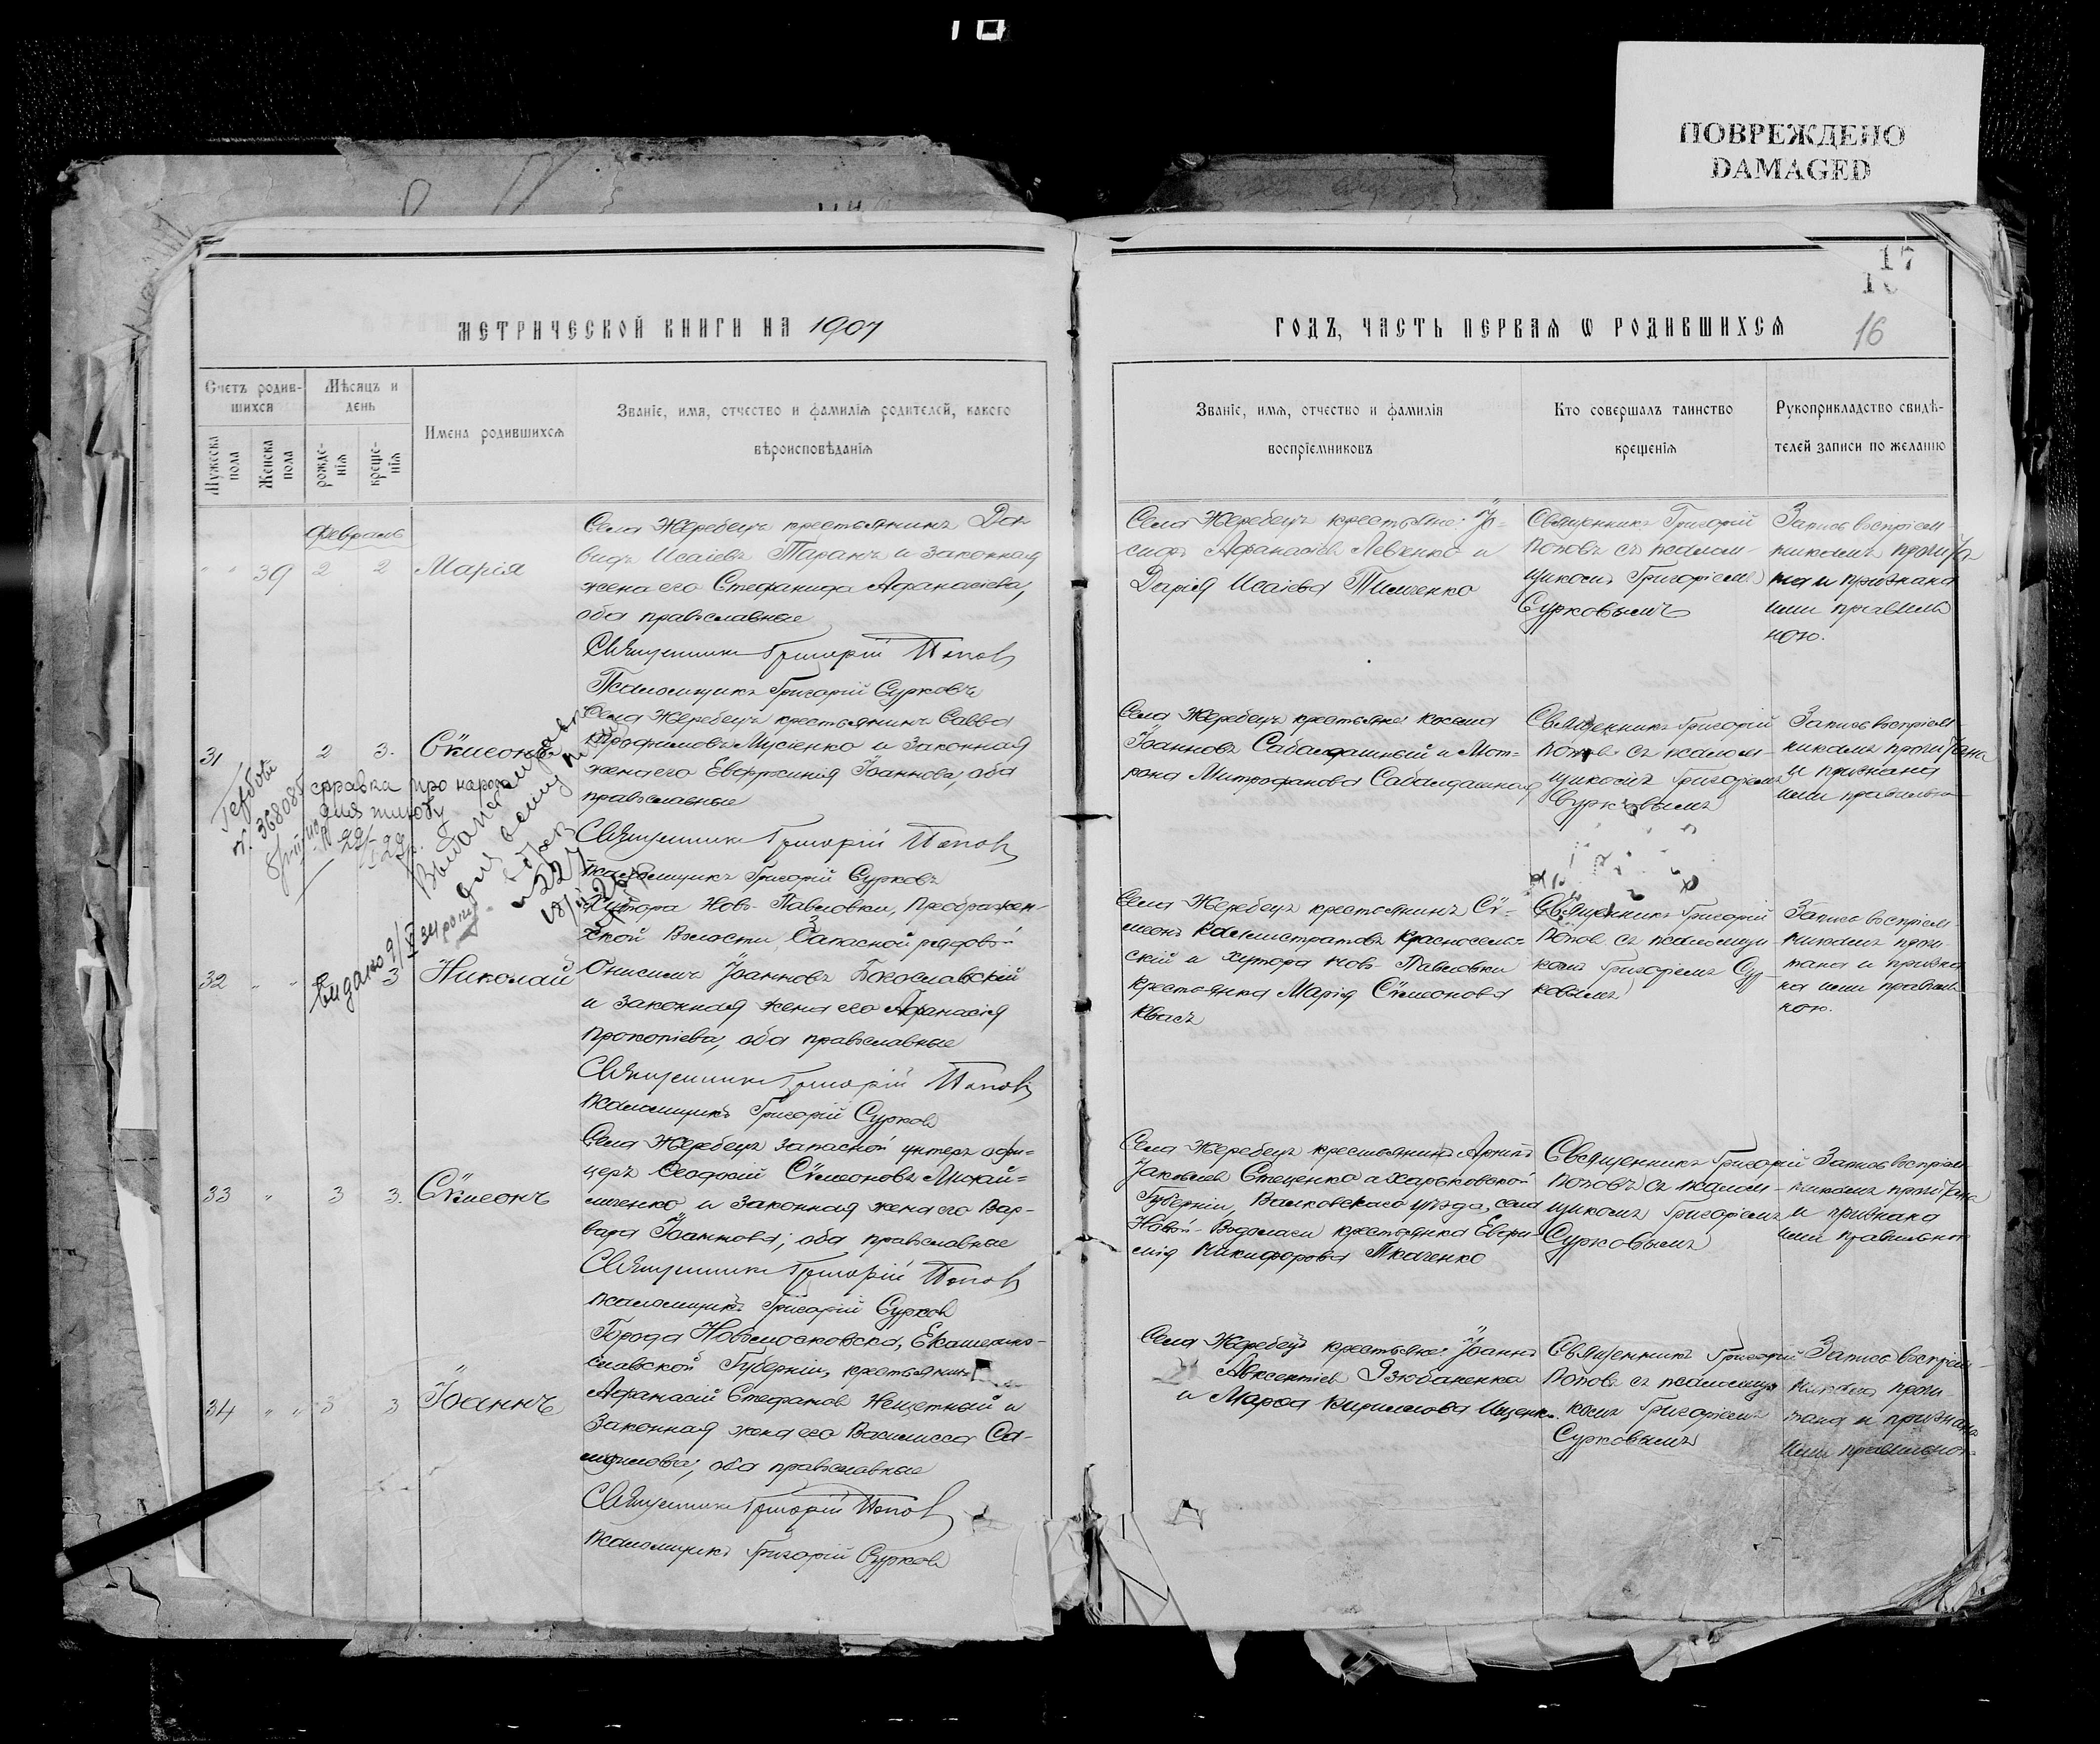 ПОВРЕЖДЕНО
DAMAGED
17
16
МЕТРИЧЕСКОЙ КНИГИ НА 1907
ГОДЪ, ЧАСТЬ ПЕРВАЯ Ѡ РОДИВШИХСЯ
Счетъ родив-
шихся
Мужеска
пола
Женска
пола
Мѣсяцъ и
день
рожде-
нія
креще-
нія
Имена родившихся
Званіе, имя, отчество и фамилія родителей, какого
вѣроисповѣданія
Званіе, имя, отчество и фамилія
воспріемниковъ
Кто совершалъ таинство
крещенія
Рукоприкладство свидѣ-
телей записи по желанію
Февраль
39 2 2 Марія
Села Жеребецъ крестьянинъ Да-
видъ Исаіевъ Таранъ и законная
жена его Стефанида Афанасіева,
оба православные
Священникъ Григорій Поповъ
Псаломщикъ Григорій Сурковъ
Села Жеребецъ крестьяне: Іо-
сифъ Афанасіевъ Левченко и
Дарія Исаіева Тимченко
Священникъ Григорій
Поповъ съ псалом-
щикомъ Григоріемъ
Сурковымъ
Запись воспріем-
никамъ прочита-
на и признана
ими правиль
ною.
31 2 3. Сѷмеонъ
Села Жеребецъ крестьянинъ Савва
Трофимовъ Мусіенко и законная
жена его Евфросинія Іоаннова, оба
православные
Священникъ Григорій Поповъ
Псаломщикъ Григорій Сурковъ
Села Жеребецъ крестьяне: Косьма
Іоанновъ Сабалдашный и Мот-
рона Митрофанова Сабалдашная
Священникъ Григорій
Поповъ съ псалом-
щикомъ Григоріемъ
Сурковымъ
Запись воспріем-
никамъ прочитана
и признана
ими правильно
№ 368085 справка про народ
для шлюбу
№ 227
Видано
32 3 Николай
Хутора Ново-Павловки, Преображен-
ской Волости, Запасной рядовой
Онисимъ Іоанновъ Богославскій
и законная жена его Афанасія
Прокопіева, оба православные
Священникъ Григорій Поповъ
псаломщикъ Григорій Сурковъ
Села Жеребецъ крестьянинъ Сѷ-
меонъ Каллистратовъ Красносель-
скій и Хутора Ново-Павловки
крестьянка Марія Сѷмеонова
Квасъ
Священникъ Григорій
Поповъ съ псаломщи-
комъ Григоріемъ Сур-
ковымъ
Запись воспріем-
никамъ прочи-
тана и призна
на ими правиль
ною.
33 3 3. Сѷмеонъ
Села Жеребецъ запасной унтеръ офи-
церъ Ѳеодосій Сѷмеоновъ Михай-
личенко и законная жена его Вар-
вара Іоаннова, оба православные
Священникъ Григорій Поповъ
псаломщикъ Григорій Сурковъ
Села Жеребецъ крестьянинъ
Іаковлевъ Стеценко и Харьковской
Губерніи, Валковскаго уѣзда, села
Новой-Водолаги крестьянка Евфи-
мія Никифорова Ткаченко
Священникъ Григорій
Поповъ съ псалом-
щикомъ Григоріемъ
Сурковымъ
Запись воспріем-
никамъ прочитана
и признана
ими правильною
34 3 3 Іоаннъ
Города Новомосковска, Екатерино-
славской Губерніи, крестьянинъ
Афанасій Стефановъ Нещетный и
законная жена его Василисса Са-
муилова, оба православные
Священникъ Григорій Поповъ
псаломщикъ Григорій Сурковъ
Села Жеребецъ крестьяне: Іоаннъ
Авксентіевъ Дзюбаненко
и Марѳа Кириллова Ищенко.
Священникъ Григорій
Поповъ съ псаломщи
комъ Григоріемъ
Сурковымъ
Запись воспріем-
никамъ прочи-
тана и признана
ими правильною